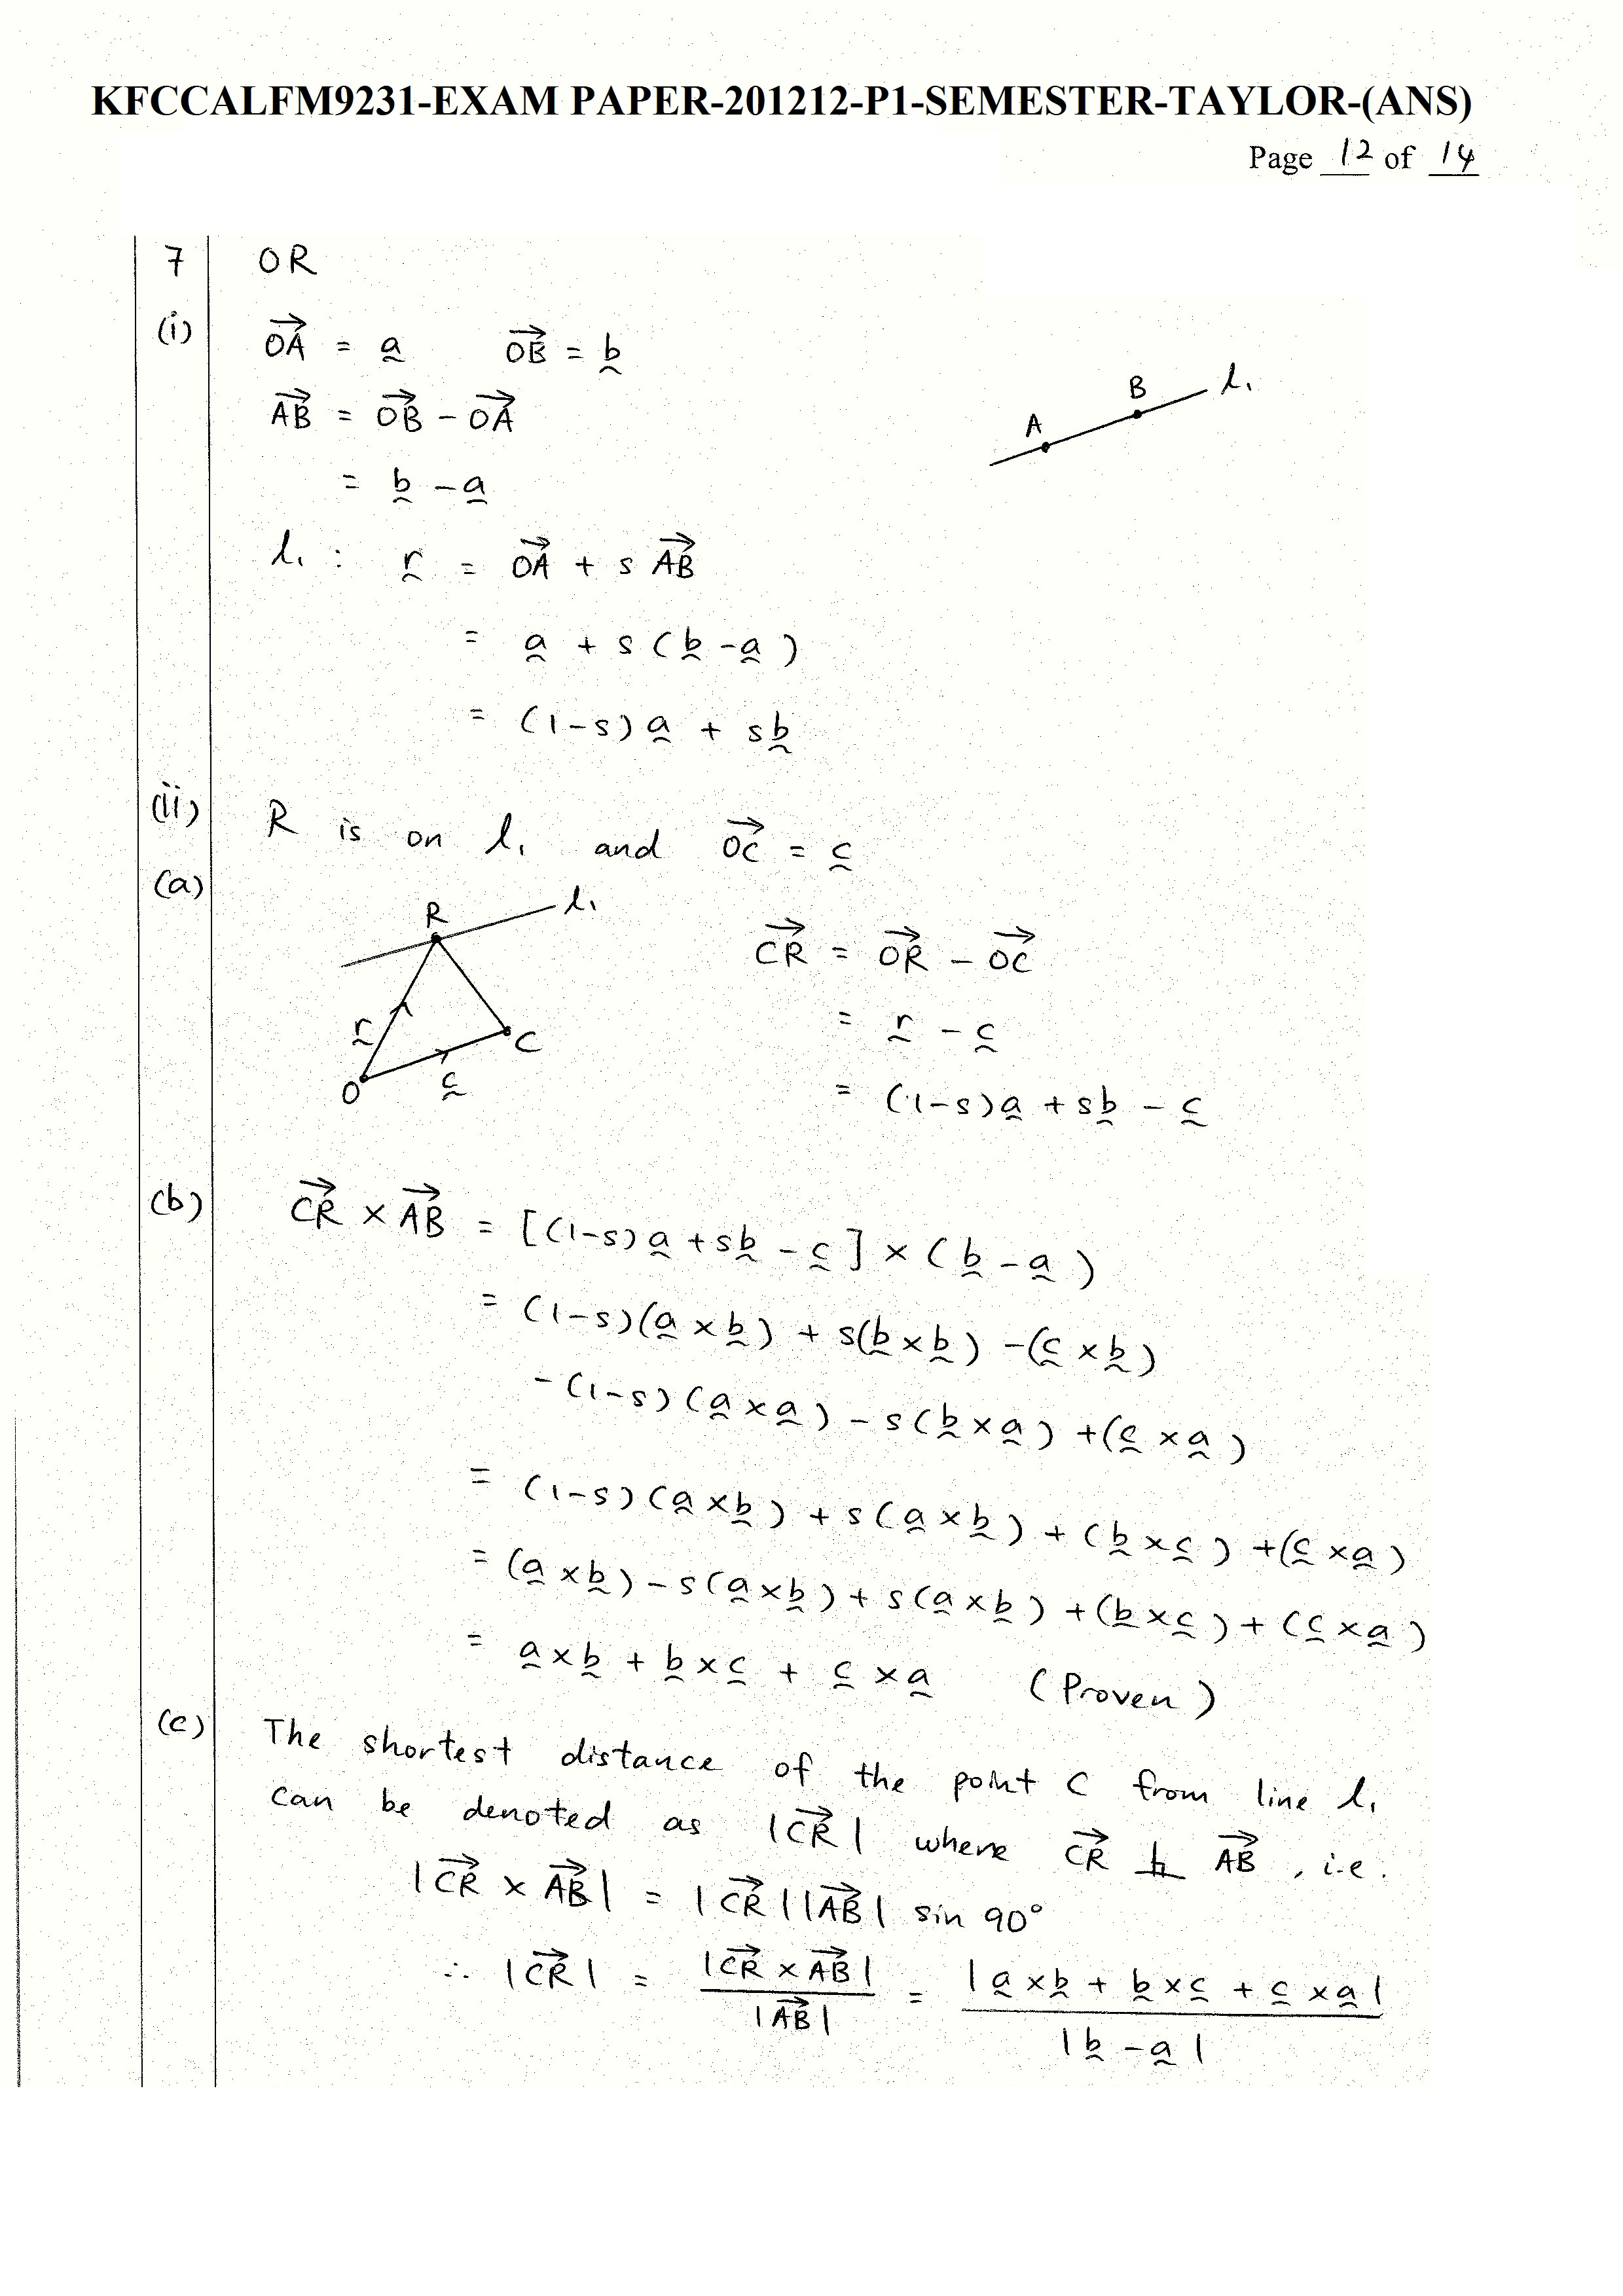 KFCCALFM9231-EXAM PAPER-201212-P1-SEMESTER-TAYLOR-(ANS)
Page 12 of 14
7 OR
(i) →OA = a̰ →OB = b̰
→AB = →OB - →OA
= b̰ - a̰
A B l₁
l₁ : r̰ = →OA + s →AB
= a̰ + s (b̰ - a̰)
= (1-s) a̰ + s b̰
(ii) R is on l₁ and →OC = c̰
(a)
R l₁
r̰ C
O c̰
→CR = →OR - →OC
= r̰ - c̰
= (1-s) a̰ + s b̰ - c̰
(b) →CR × →AB = [(1-s) a̰ + s b̰ - c̰] × (b̰ - a̰)
= (1-s)(a̰ × b̰) + s(b̰ × b̰) - (c̰ × b̰)
- (1-s)(a̰ × a̰) - s(b̰ × a̰) + (c̰ × a̰)
= (1-s)(a̰ × b̰) + s(a̰ × b̰) + (b̰ × c̰) + (c̰ × a̰)
= (a̰ × b̰) - s(a̰ × b̰) + s(a̰ × b̰) + (b̰ × c̰) + (c̰ × a̰)
= a̰ × b̰ + b̰ × c̰ + c̰ × a̰ (Proven)
(c) The shortest distance of the point C from line l₁
can be denoted as |→CR| where →CR ⊥ →AB, i.e.
|→CR × →AB| = |→CR||→AB| sin 90°
∴ |→CR| = |→CR × →AB| / |→AB| = |a̰ × b̰ + b̰ × c̰ + c̰ × a̰| / |b̰ - a̰|